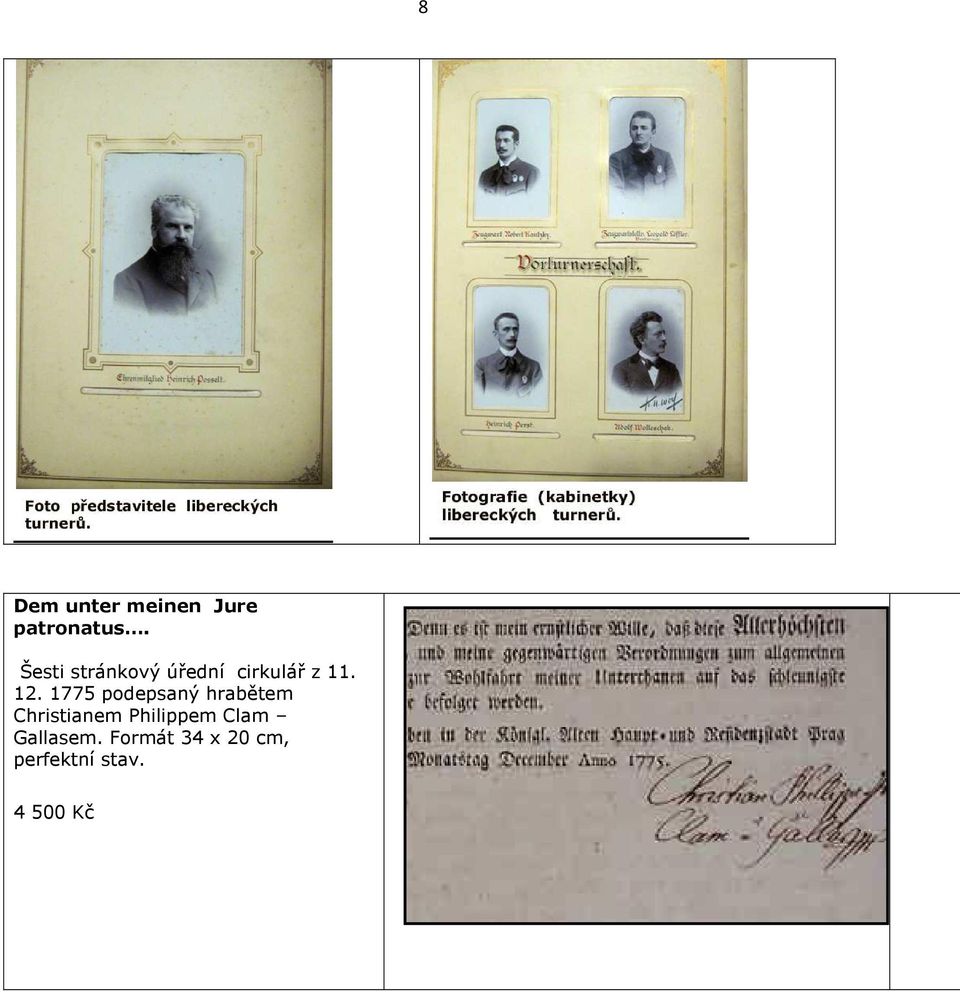 8
Ehrenmitglied Heinrich Posselt.
Foto představitele libereckých
turnerů.
Zeugwart Robert Kautzky.
Leopold Löffler.
Vorturnerschaft.
Heinrich Perst.
Adolf Wolleschek.
Fotografie (kabinetky)
libereckých turnerů.
Dem unter meinen Jure
patronatus….
Šesti stránkový úřední cirkulář z 11.
12. 1775 podepsaný hrabětem
Christianem Philippem Clam –
Gallasem. Formát 34 x 20 cm,
perfektní stav.
4 500 Kč
Denn es ist mein ernstlicher Wille, daß diese Allerhöchsten
und meine gegenwärtigen Verordnungen zum allgemeinen
zur Wohlfahrt meiner Unterthanen auf das schleunigste
e befolget werden.
ben in der Königl. Alten Haupt-und Residenzstadt Prag
Monatstag December Anno 1775.
Christian Philipp
Clam Gallass